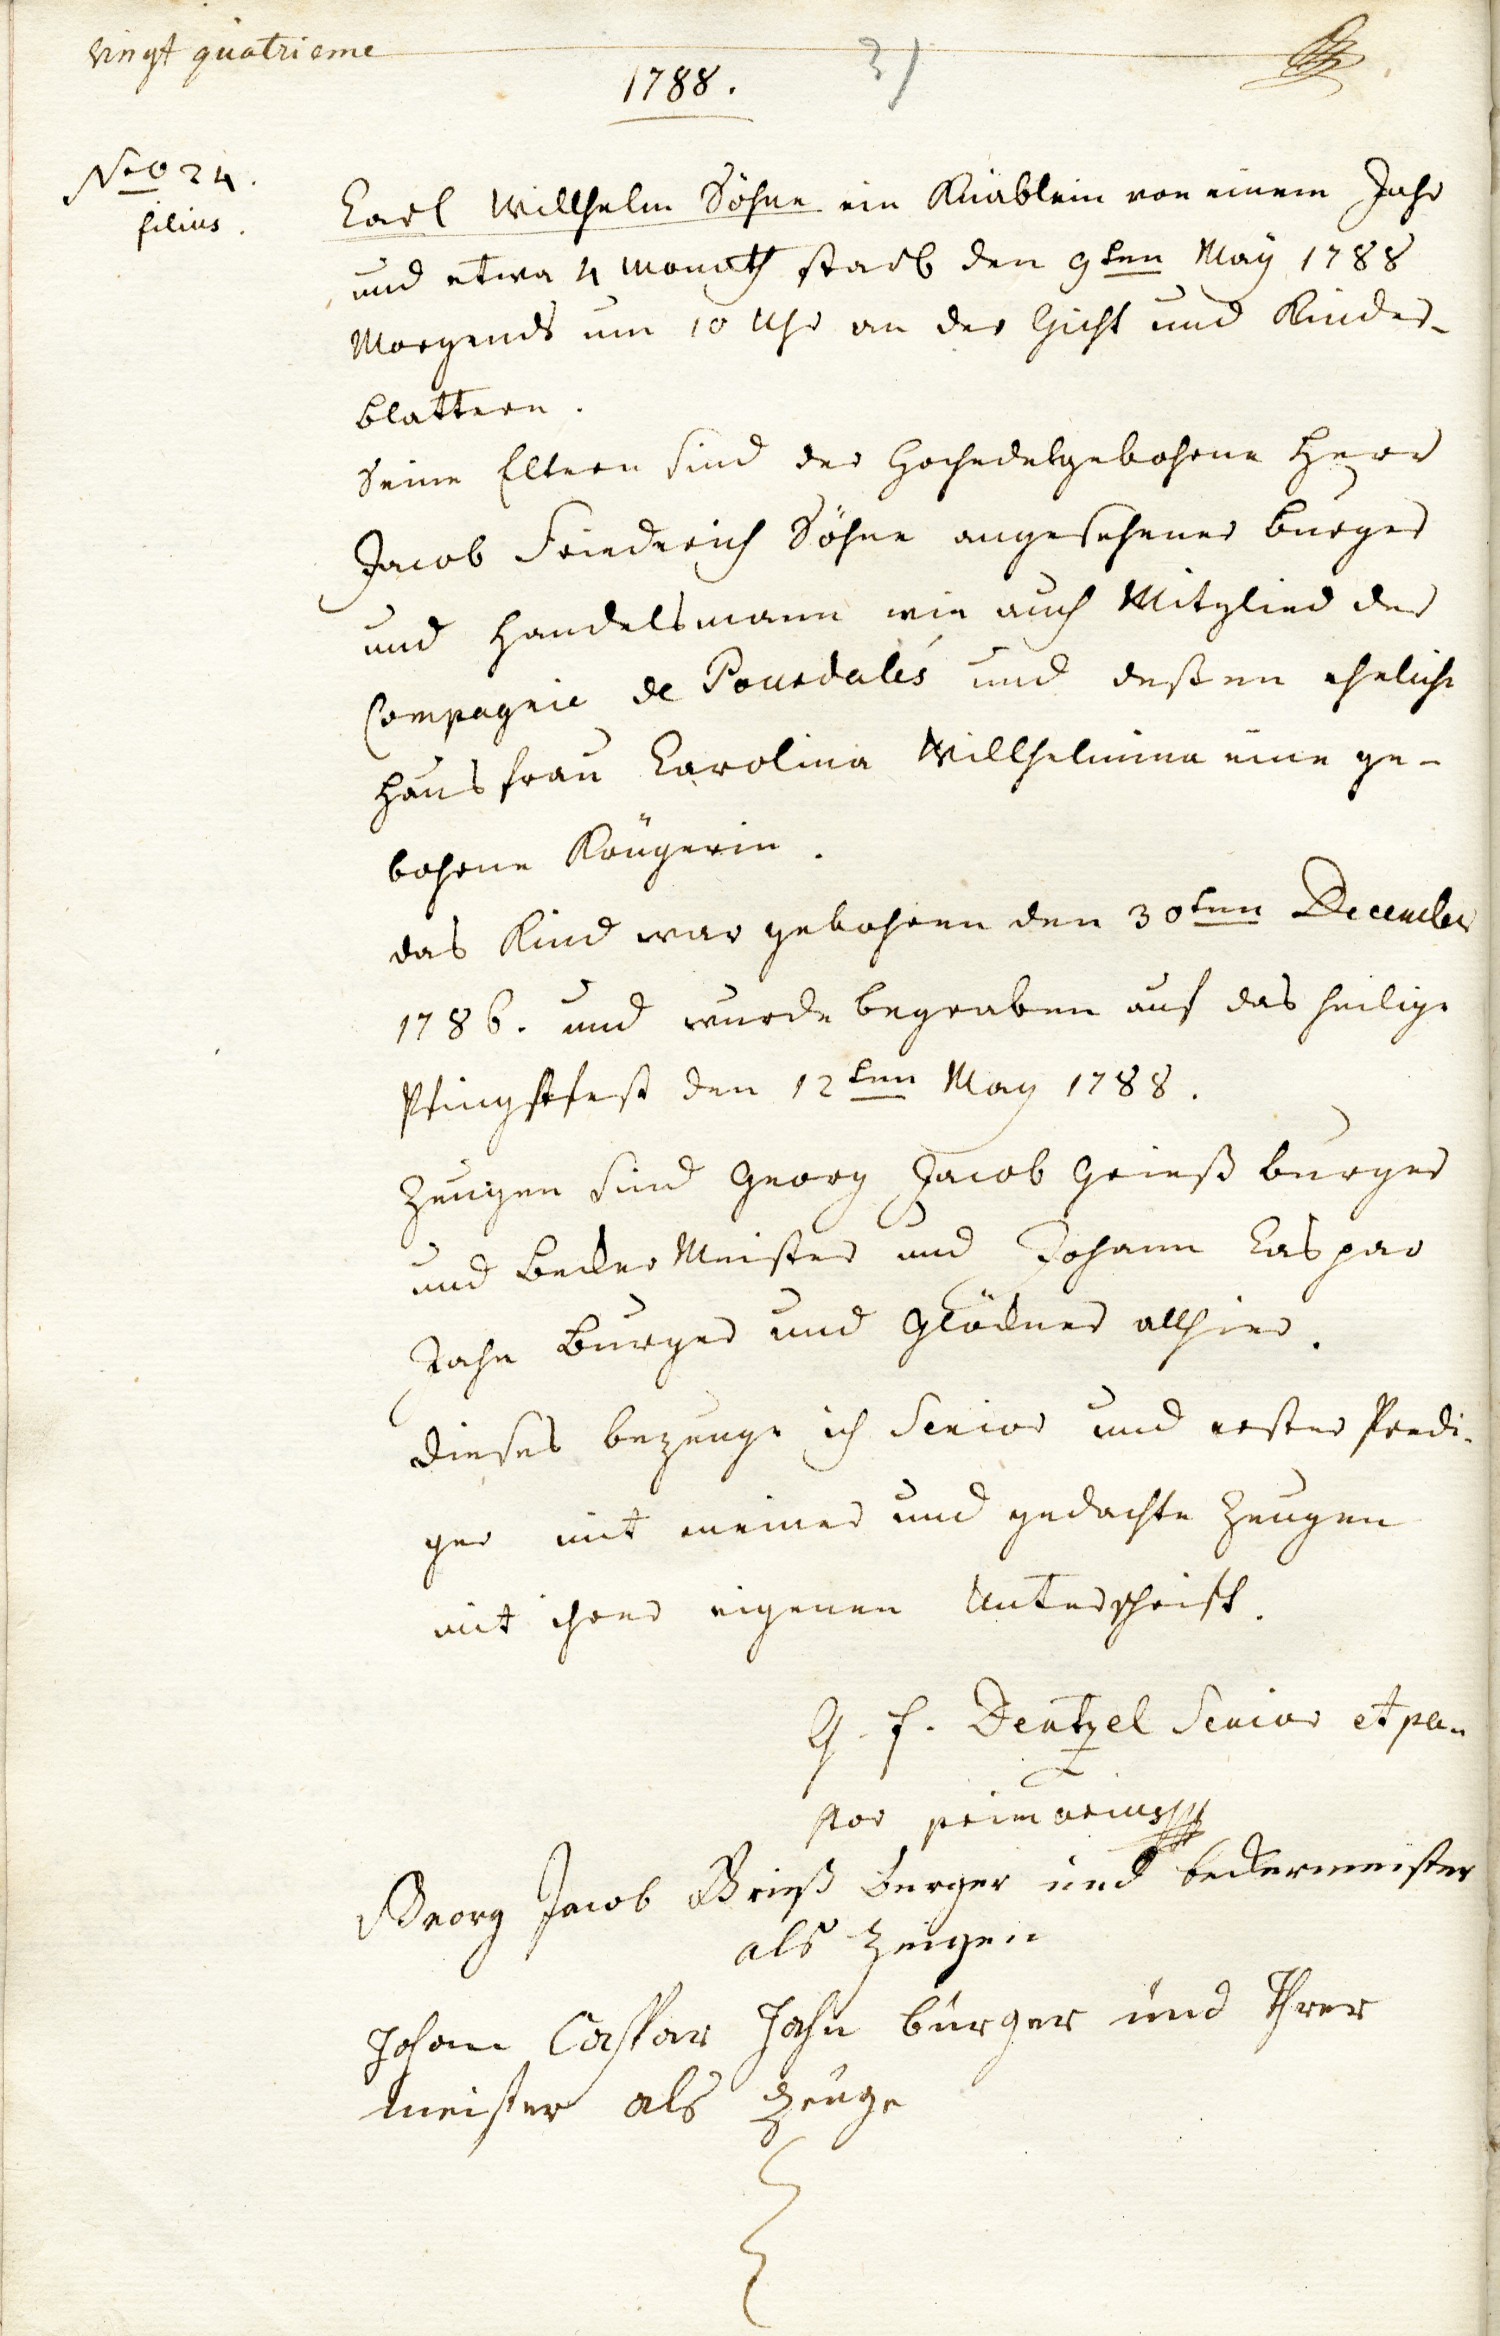 vingt quatrieme
1788.
31
Nro 24.
filius.
Carl Willhelm Söhne ein Knäblein von einem Jahr
und etwa 4 Monath starb den 9ten Maÿ 1788
Morgends um 10 Uhr an der Gicht und Kinder-
blattern.
Seine Eltern sind der Hochedelgebohrne Herr
Jacob Friederich Söhne angesehener burger
und Handelsmann wie auch Mitglied der
Compagnie de und deßen eheliche
Hausfrau Carolina Willhelmina eine ge-
bohrne
das Kind war gebohren den 30ten December
1786. und wurde begraben auf das heilige
Pfingstfest den 12ten May 1788.
Zeugen sind Georg Jacob Grieß burger
und Becker Meister und Johann Caspar
Jahn Burger und Glöckner allhier.
dieses bezeuge ich Senior und erster Predi-
ger mit meiner und gedachte Zeugen
mit ihrer eigenen Unterschrift.
G. F. Dentzel Senior et pa-
stor primarius
Georg Jacob Grieß burger und beckermeister
als Zeigen
Johann Caspar Jahn bürger und
meister als Zeuge